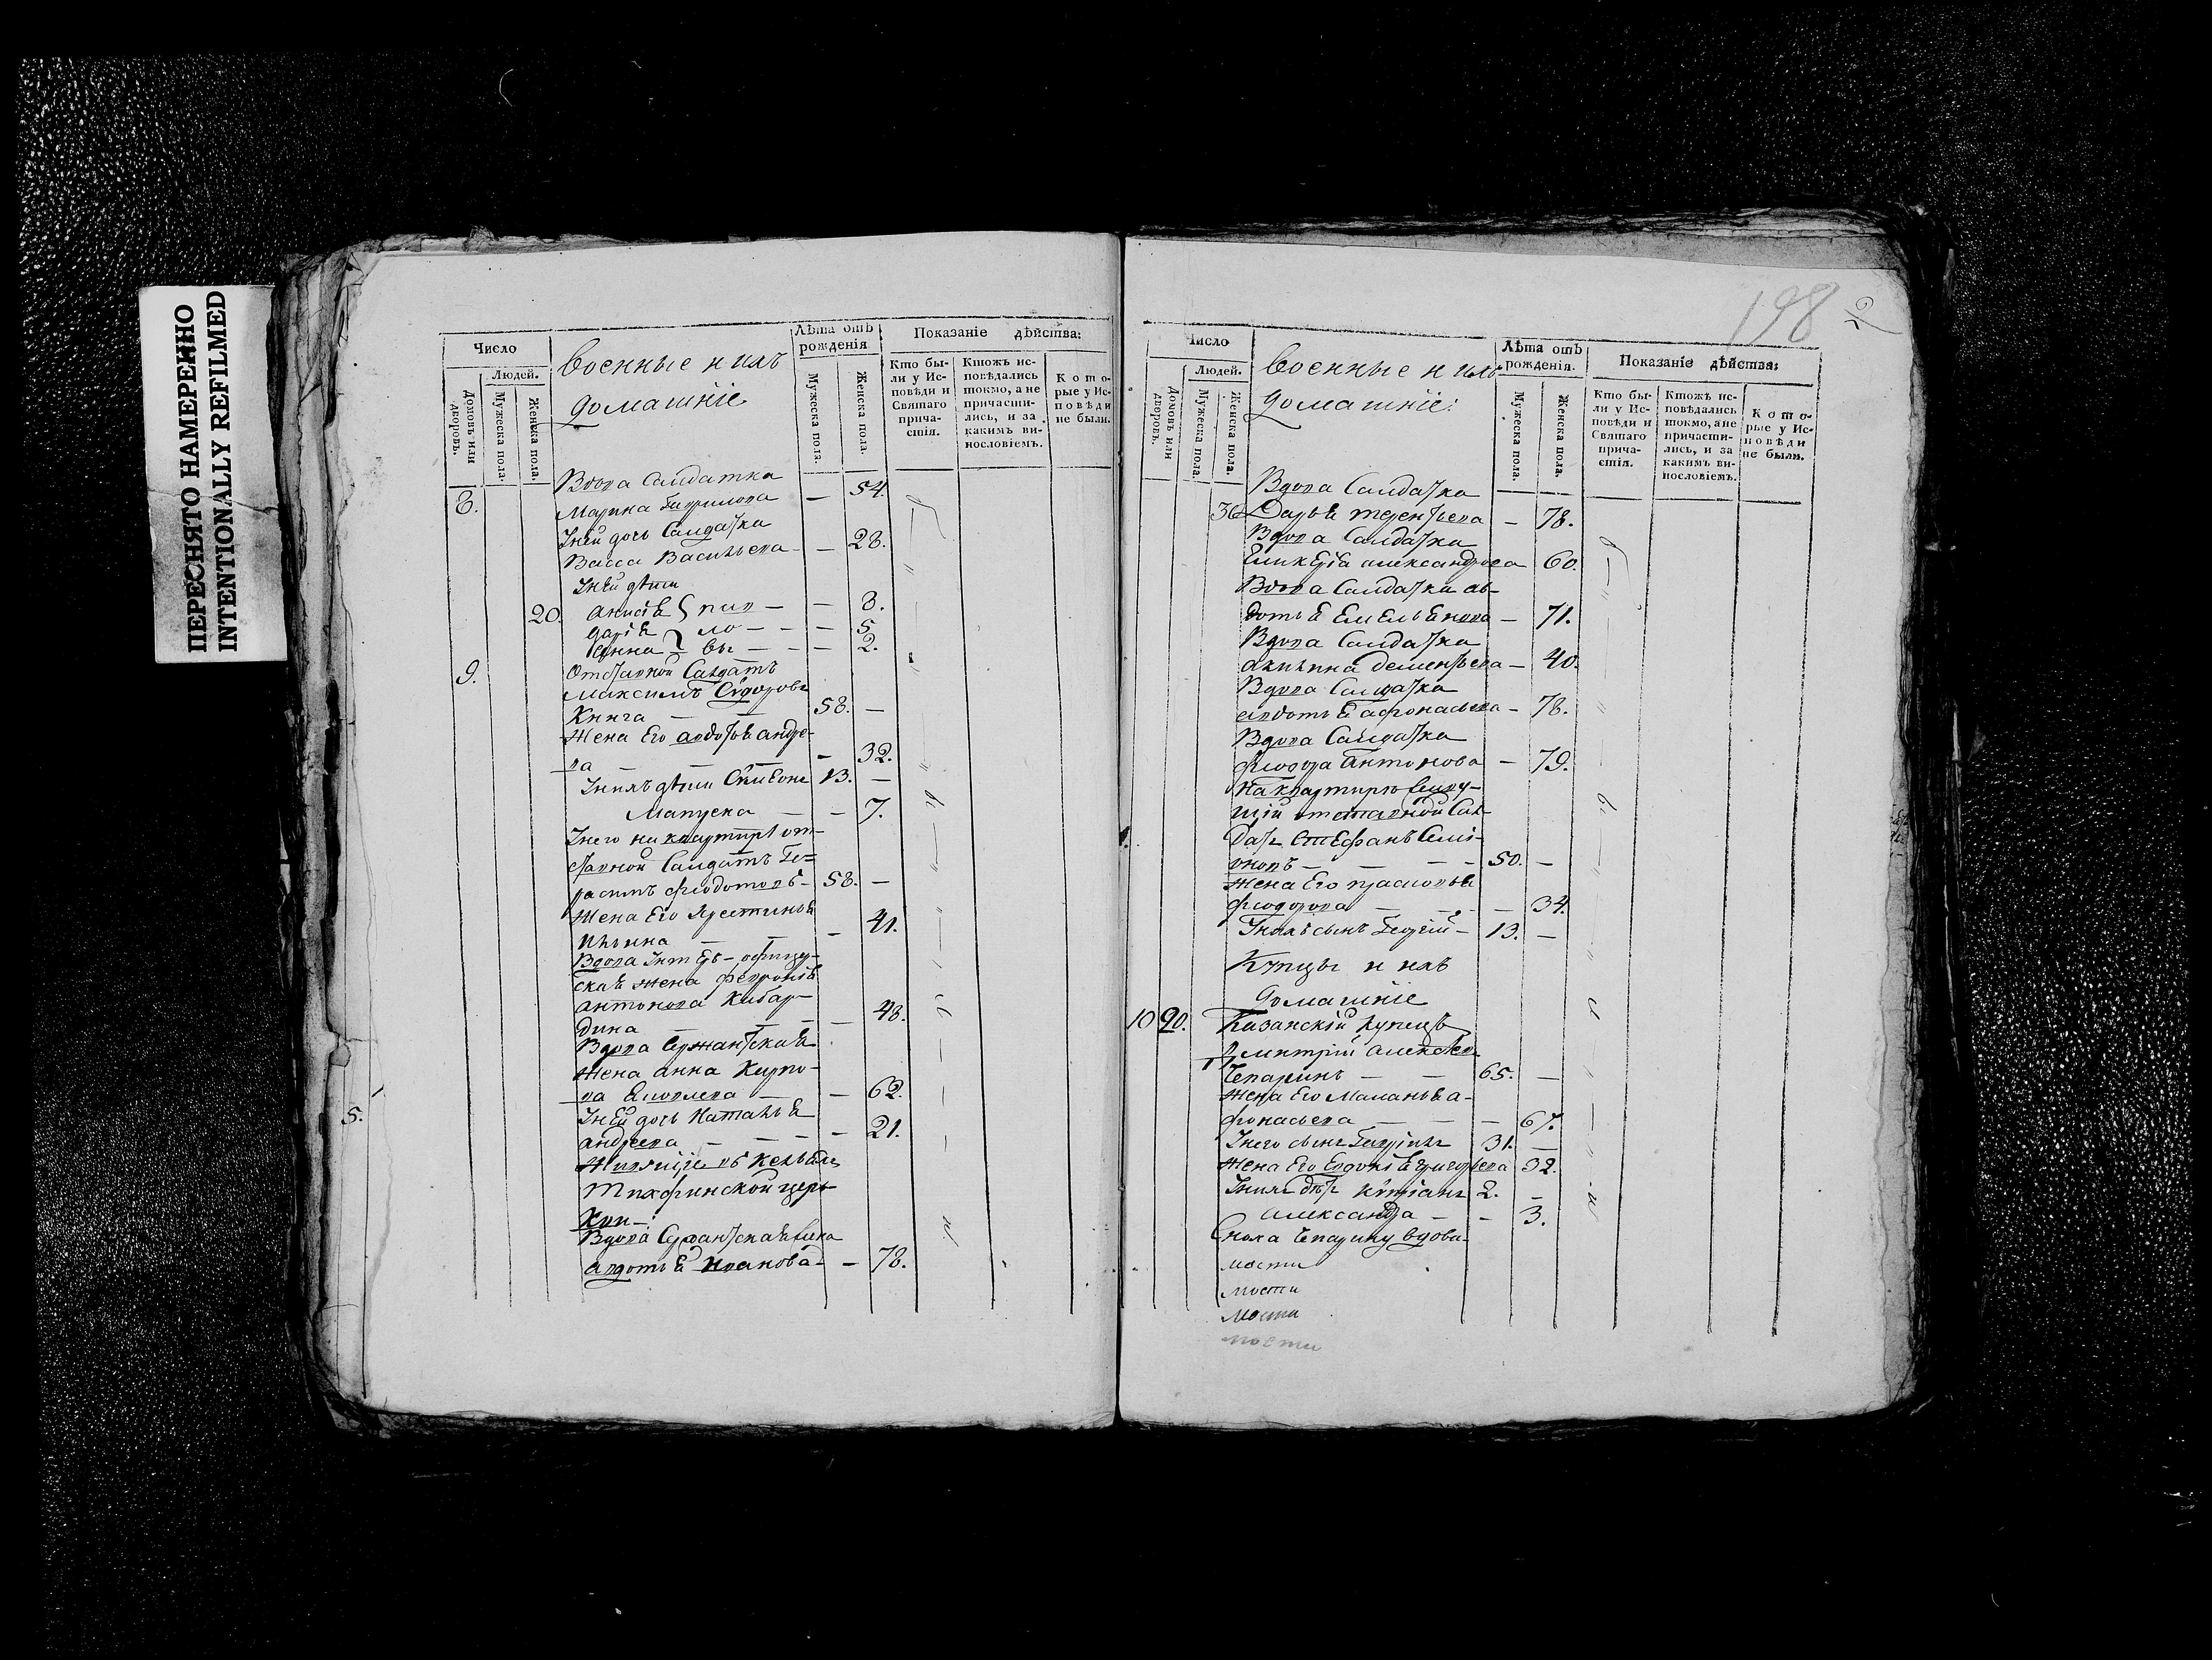 ПЕРЕСНЯТО НАМЕРЕННО
INTENTIONALLY REFILMED
Число
Людей.
Домовъ или дворовъ.
Мужеска пола.
Женска пола.
Военные и ихъ
домашніе
Лѣта отъ рожденія
Мужеска пола.
Женска пола.
Показаніе дѣйства:
Кто бы-
ли у Ис-
повѣди и
Святаго
прича-
стія.
Ктожъ ис-
повѣдались
токмо, а не
причасти-
лись, и за
какимъ ви-
нословіемъ.
Кото-
рые у Ис-
повѣди
не были.
Вдова Салдатка
8. Марина Гаврилова — 54.
Унеи дочь Салдатка
Васса Васильева — — 28.
Унеи дѣти
20. анисія — — 8.
дарія — — — 5
анна — — — 2.
9. Отставной Салдатъ
Максимъ Сидоровъ
Книга — — 58. —
Жена Его авдотья андре-
ва — — — — 32.
Унихъ дѣти 13. —
— — 7.
Унего на квартирѣ от-
ставной Салдатъ Ге-
расимъ федотовъ — 58. —
Жена Его
ильина — — — 41.
Вдова офицер-
ская жена феврониа
антонова
дина — — — — 48.
Вдова Сержантская
Жена анна Карпо-
ва — — 62.
5. Унеи дочь Наталья
андреева — — — — 21.
Живущіе въ кельяхъ
Тихфинской церк-
кви —
Вдова Сержантская жена
авдотья Иванова — — 78.
198
2
Число
Людей.
Домовъ или дворовъ.
Мужеска пола.
Женска пола.
Военные и ихъ
домашніе:
Лѣта отъ рожденія.
Мужеска пола.
Женска пола.
Показаніе дѣйства:
Кто бы-
ли у Ис-
повѣди и
Святаго
прича-
стія.
Ктожъ ис-
повѣдались
токмо, а не
причасти-
лись, и за
какимъ ви-
нословіемъ.
Кото-
рые у Ис-
повѣди
не были.
Вдова Салдатка
30 Дарья терентьева — 78.
Вдова Салдатка
Гликерія александрова 60.
Вдова Салдатка ав-
дотья Емельянова — 71.
Вдова Салдатка
акилина дементьева — 40.
Вдова Салдатка
авдотья афонасьева — 78.
Вдова Салдатка
федора Антонова — 79.
На квартирѣ живу-
щій отставной Сал-
дат Стефанъ Семі-
оновъ — — — 50. —
Жена Его прасковья
федорова — — — 34.
Унихъ сынъ Георгій — 13. —
Купцы и ихъ
домашніе
10 20. Казанскій купецъ
Дмитрій алексѣев
Чепаринъ — — 65. —
Жена Его Маланья а-
фонасьева — — — 67.
Унего сынъ Гавріилъ 31. —
Жена Его Евдокія григорьева 32.
Унихъ дѣт 2. —
александра — — 3.
Сноха Чепарину вдова
мости
мости
мости
мости